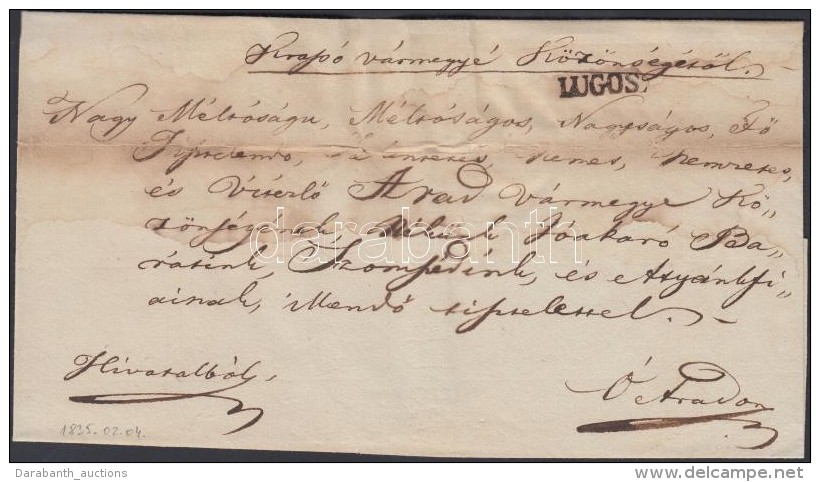 Krassó vármegyé Közönségétől.
LUGOS.
Nagy Méltóságu, Méltóságos, Nagyságos, Fő
Tisztelendő, Tekéntetes, Nemes, Nemzetes,
és Vitézlő Arad vármegye Kö„
zönségének, Nékünk Jóakaró Ba„
rátink, Szomszédink, és Atyánkfi„
ainak, illendő tisztelettel.
Hivatalból,
Ó Aradon
1835.02.04.
darabanth
Darabanth_auctions
delcampe.net